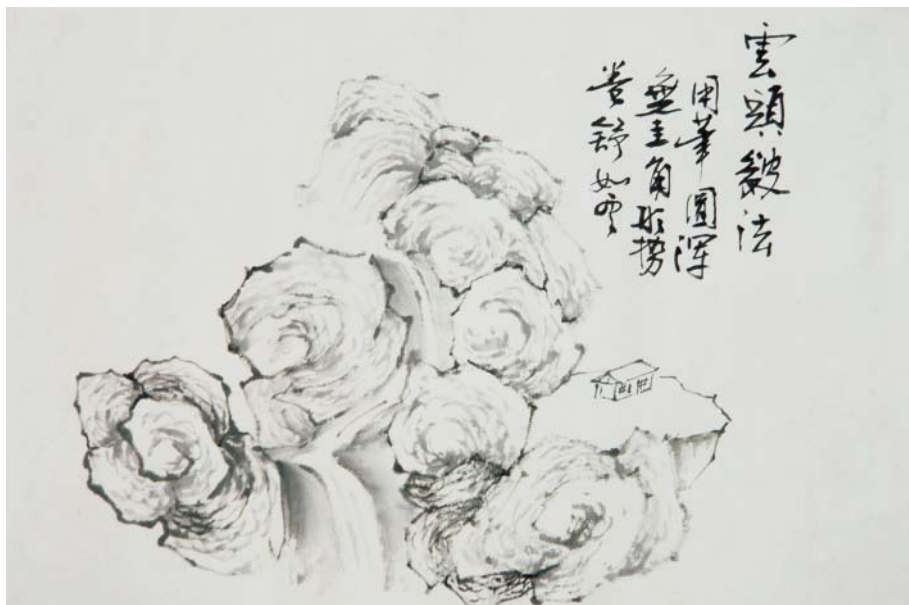 雲頭皴法
用筆圓渾
無圭角形勢
卷舒如雲